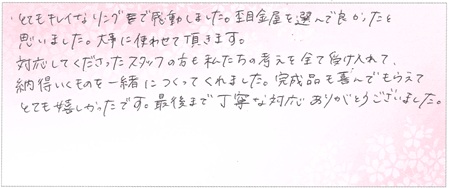 とてもキレイなリングで感動しました。杢目金屋を選んで良かったと
思いました。大事に使わせて頂きます。
対応してくださったスタッフの方も私たちの考えを全て受け入れて、
納得いくものを一緒につくってくれました。完成品も喜んでもらえて
とても嬉しかったです。最後まで丁寧な対応ありがとうございました。